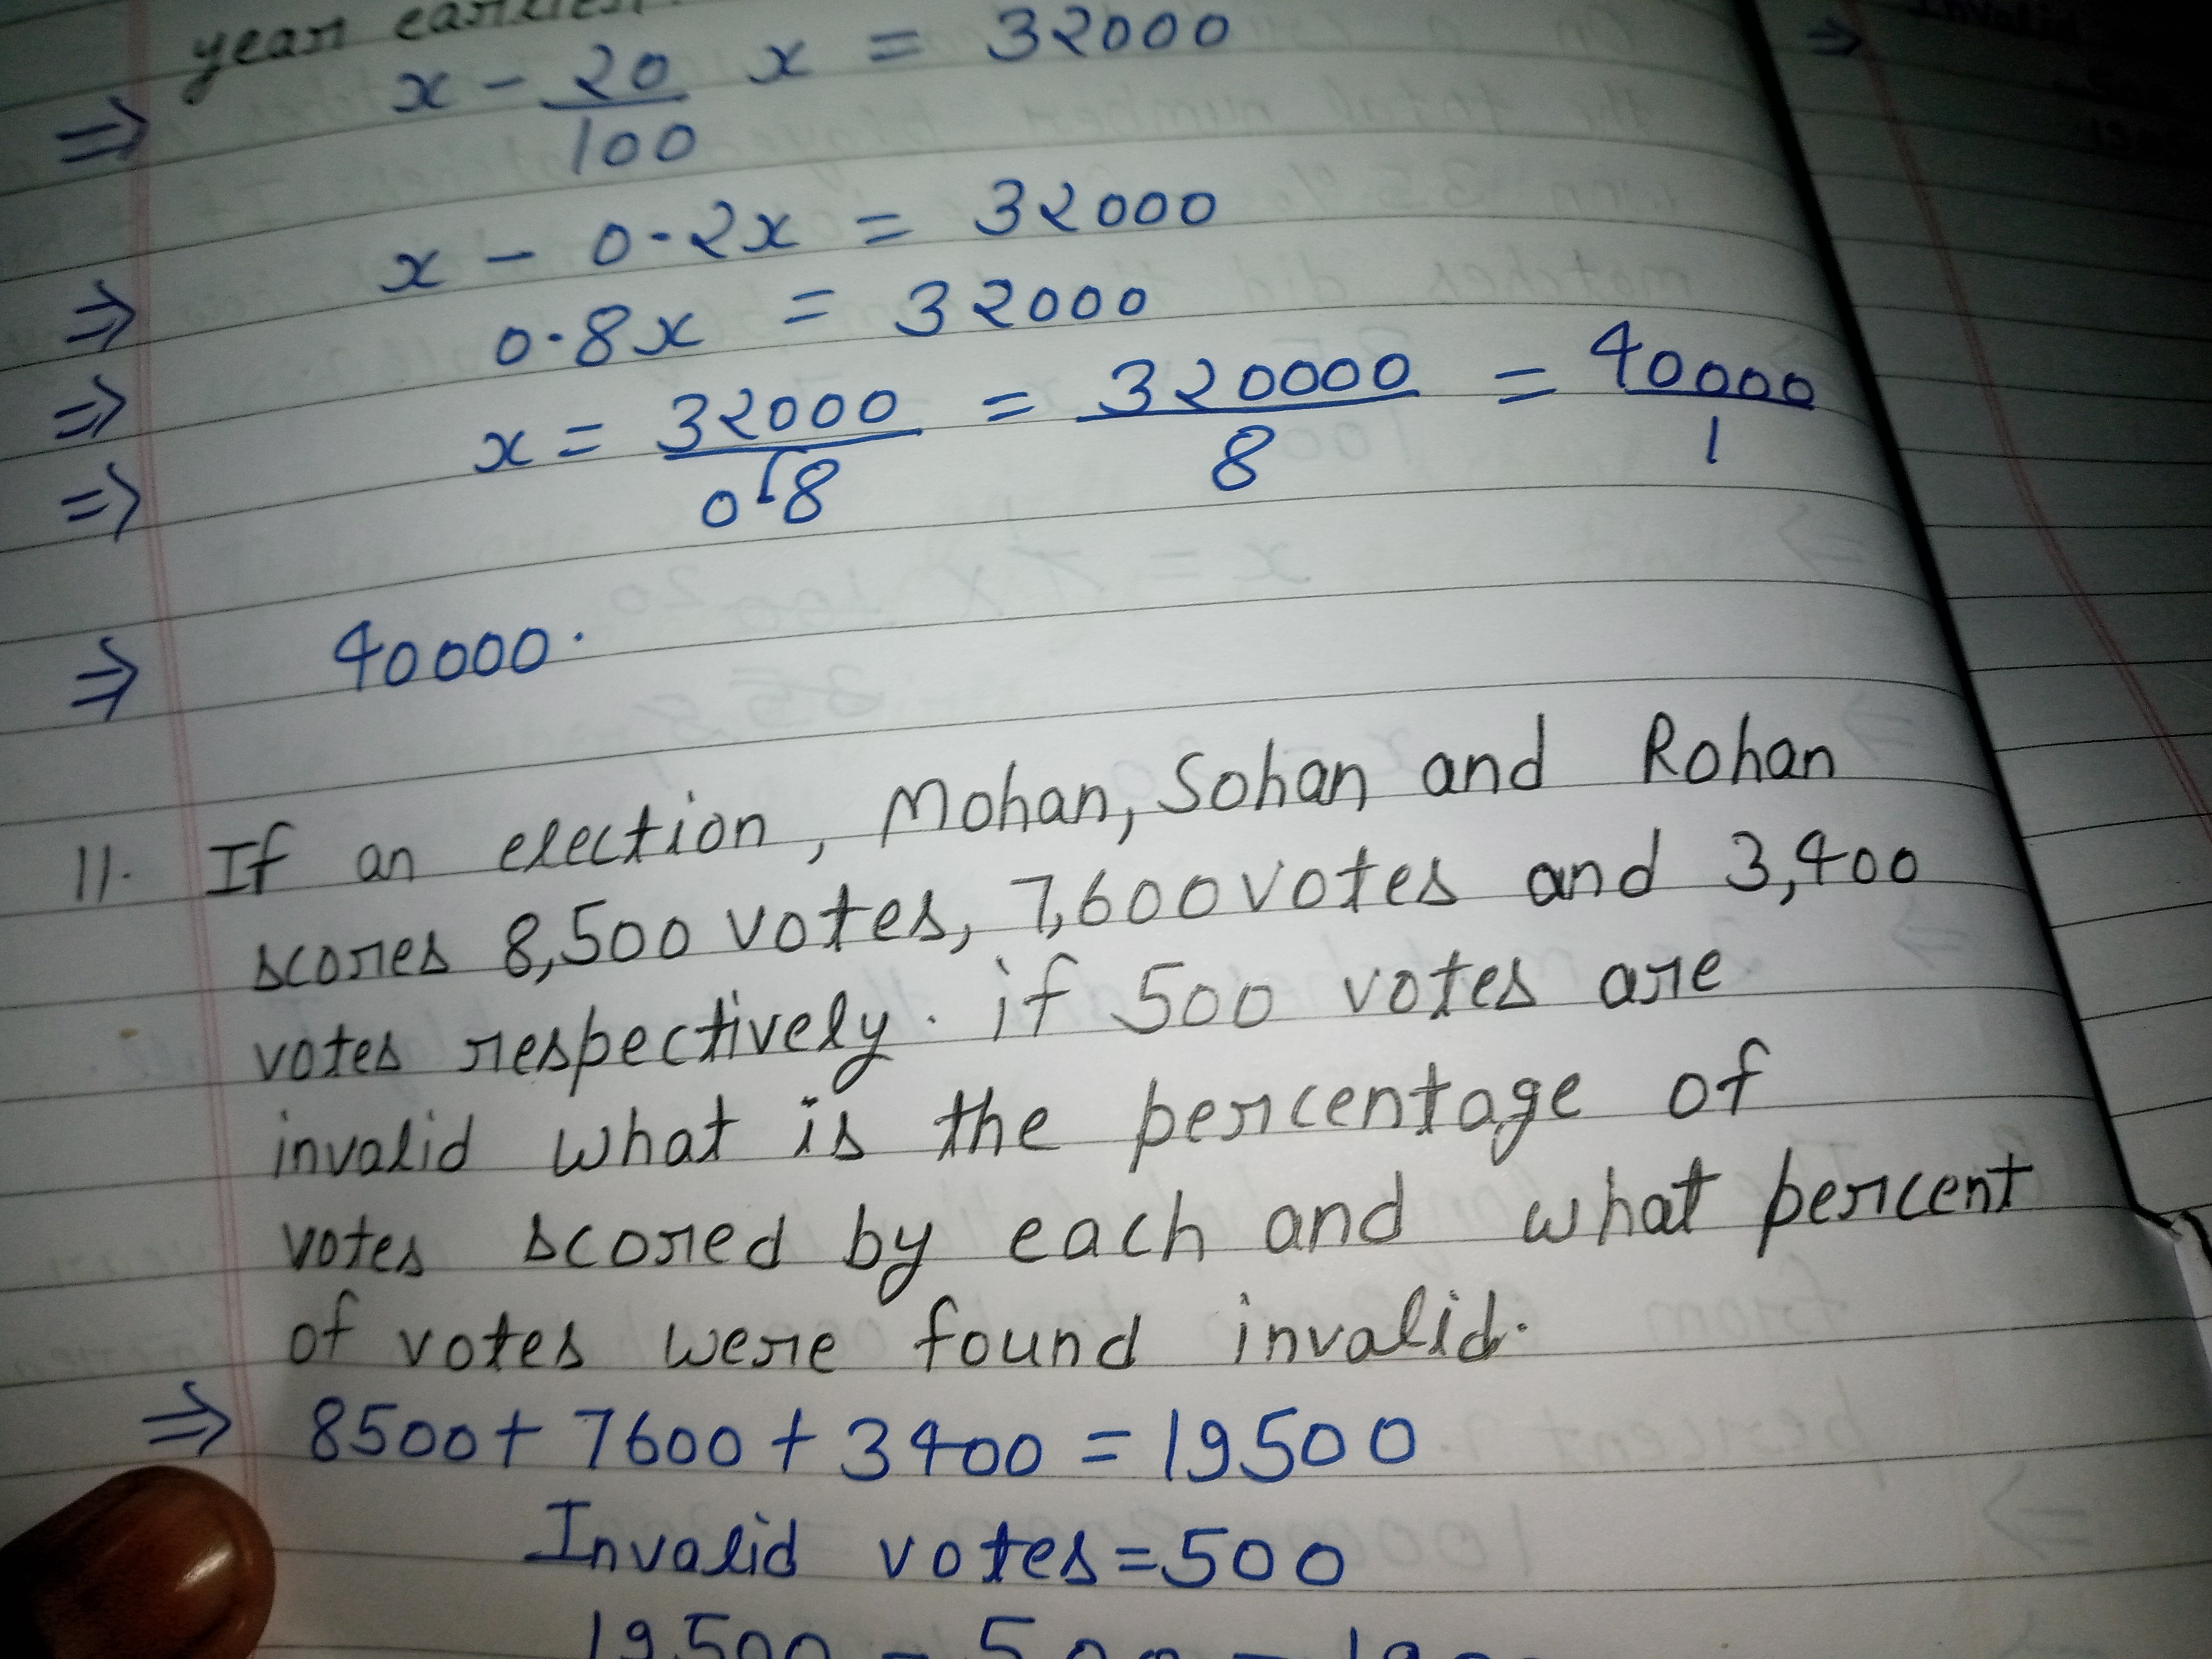 year earlier.
⇒ x - 20/100 x = 32000
⇒ x - 0.2x = 32000
⇒ 0.8x = 32000
⇒ x = 32000/0.8 = 320000/8 = 40000/1
⇒ 40000.
11. If an election, Mohan, Sohan and Rohan
scores 8,500 votes, 7,600 votes and 3,400
votes respectively. if 500 votes are
invalid what is the percentage of
votes scored by each and what percent
of votes were found invalid.
⇒ 8500 + 7600 + 3400 = 19500
Invalid votes = 500
19500 - 500 =